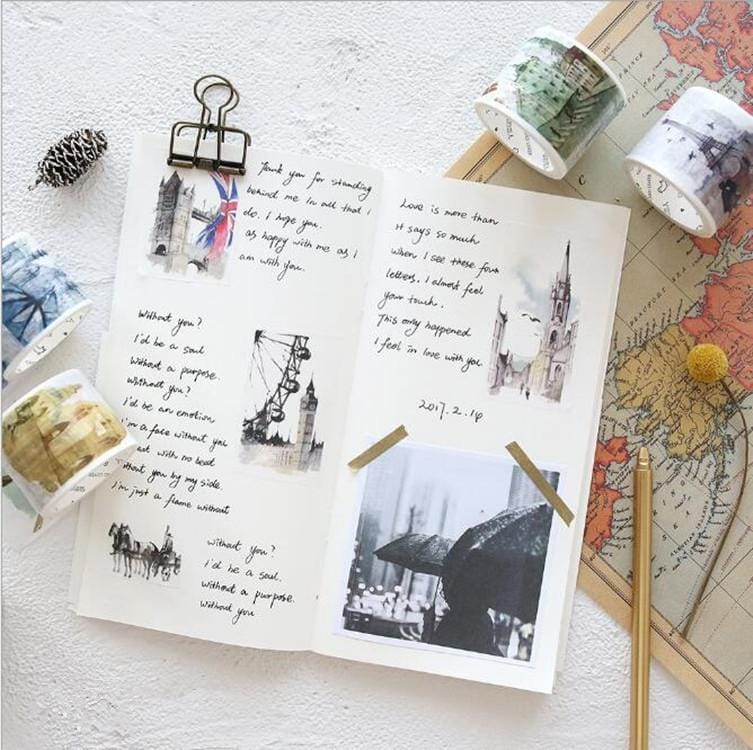 Thank you for standing
behind me in all that I
do. I hope you.
as happy with me as I
am with you.
Without you?
I'd be a soul
Without a purpose.
Without you?
I'd be an emotion
I'm a face without you
at with no beat
ithout you by my side.
I'm just a flame without
without you?
I'd be a soul.
without a purpose.
Without you
Love is more than
it says so much
When I see these four
letters. I almost feel
your touch.
This only happened
I feel in love with you.
2017.2.14